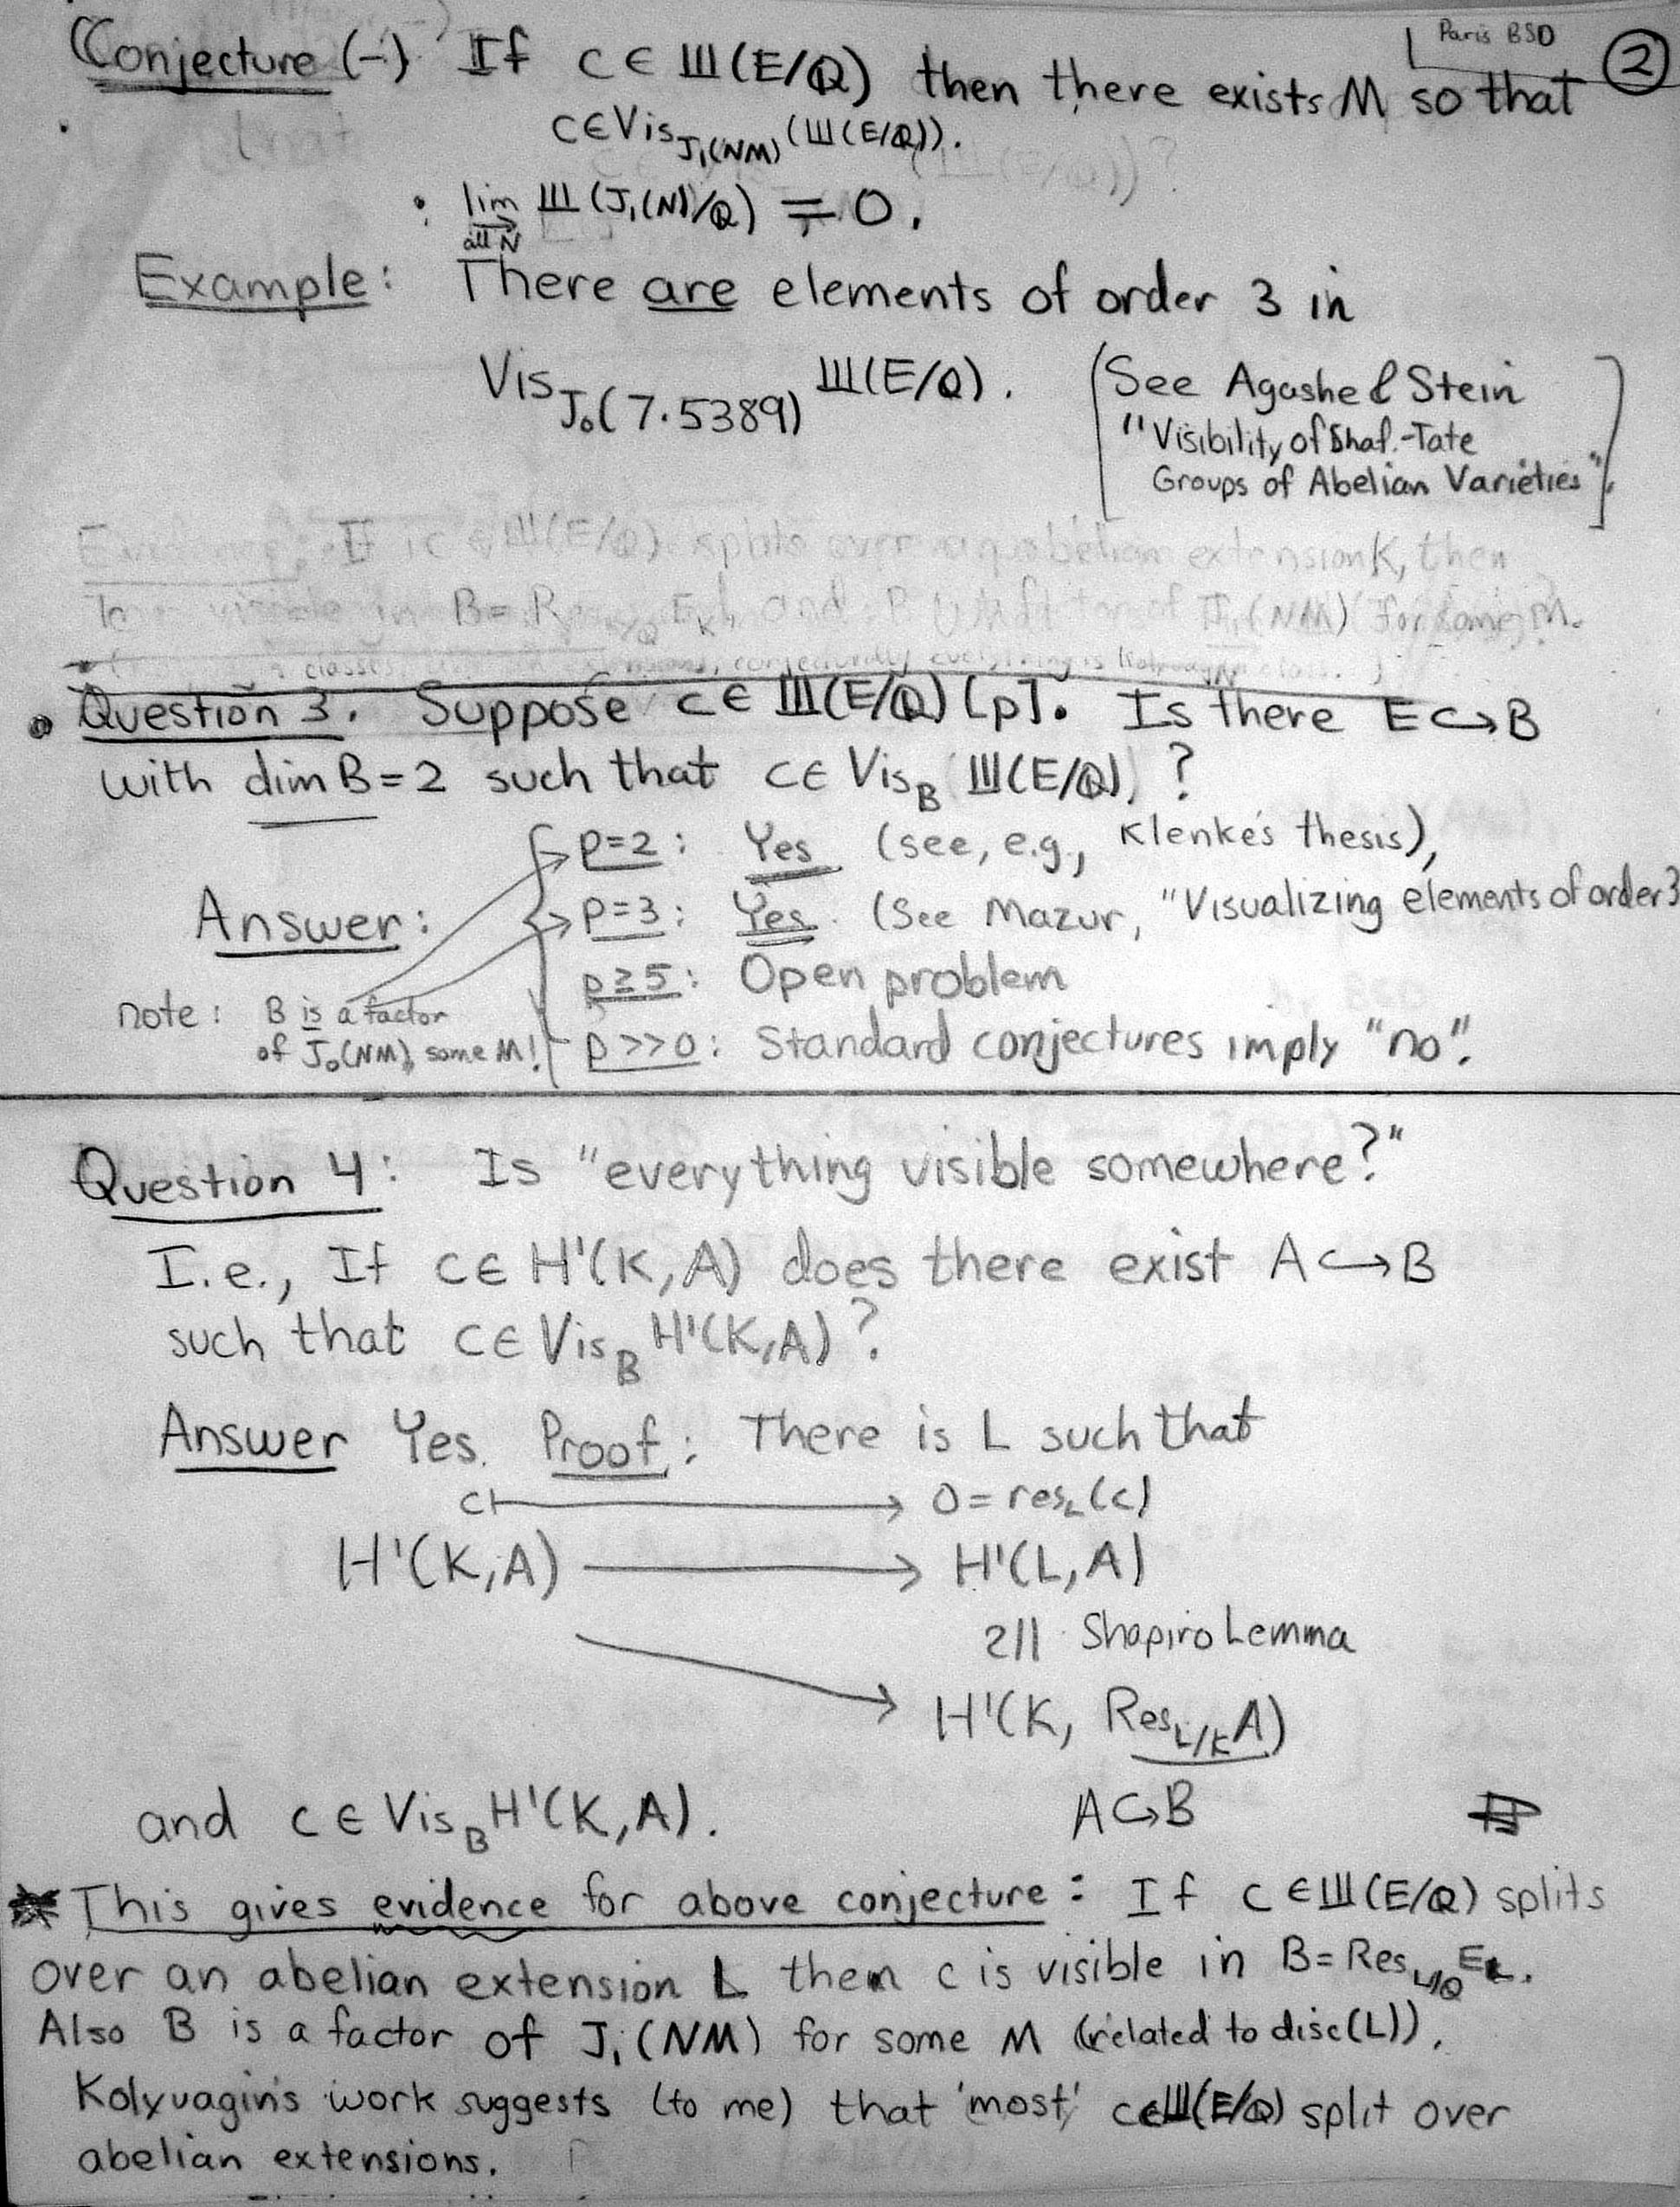 Paris BSD
②
Conjecture (-) If c ∈ Ш(E/Q) then there exists M so that
c∈Vis_{J₁(NM)} (Ш(E/Q)).
lim_{all N} Ш(J₁(N)/Q) = 0.
Example: There are elements of order 3 in
Vis_{J₀(7·5389)} Ш(E/Q).
(See Agashe & Stein
"Visibility of Shaf.-Tate
Groups of Abelian Varieties".
Question 3. Suppose c∈ Ш(E/Q)[p]. Is there E↪B
with dim B=2 such that c∈ Vis_B Ш(E/Q)?
p=2: Yes (see, e.g., Klenke's thesis),
Answer: p=3: Yes. (See Mazur, "Visualizing elements of order 3
p≥5: Open problem
note: B is a factor
of J₀(NM), some M!
p>>0: Standard conjectures imply "no".
Question 4: Is "everything visible somewhere?"
I.e., If c∈ H¹(K,A) does there exist A↪B
such that c∈Vis_B H¹(K,A)?
Answer Yes. Proof: There is L such that
c ↦ 0=res_L(c)
H¹(K,A) → H¹(L,A)
≀|| Shapiro Lemma
H¹(K, Res_{L/K}A)
and c ∈ Vis_B H¹(K,A). A↪B
This gives evidence for above conjecture: If c∈Ш(E/Q) splits
over an abelian extension L then c is visible in B=Res_{L/Q}E_L.
Also B is a factor of J₁(NM) for some M (related to disc(L)).
Kolyvagin's work suggests (to me) that 'most' c∈Ш(E/Q) split over
abelian extensions.